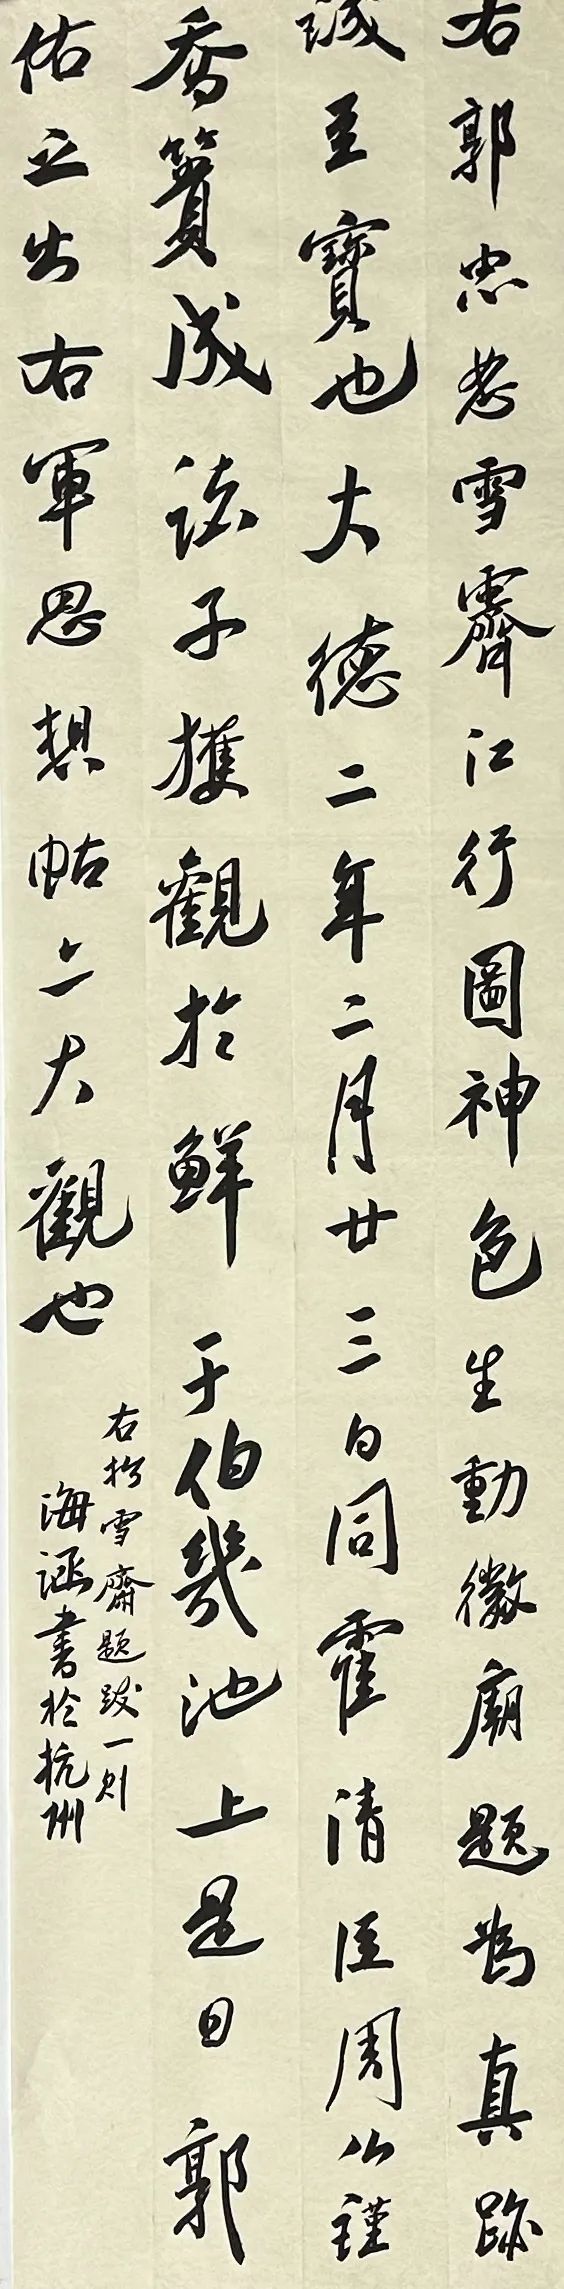 右郭忠恕雪霽江行圖神色生動徽廟題為真跡
誠至寶也大德二年二月廿三日同霍清臣周公謹
喬簣成諸子獲觀於鮮于伯幾池上是日郭
佑之出右軍思想帖亦大觀也
右松雪齋題跋一則
海涵書於杭州